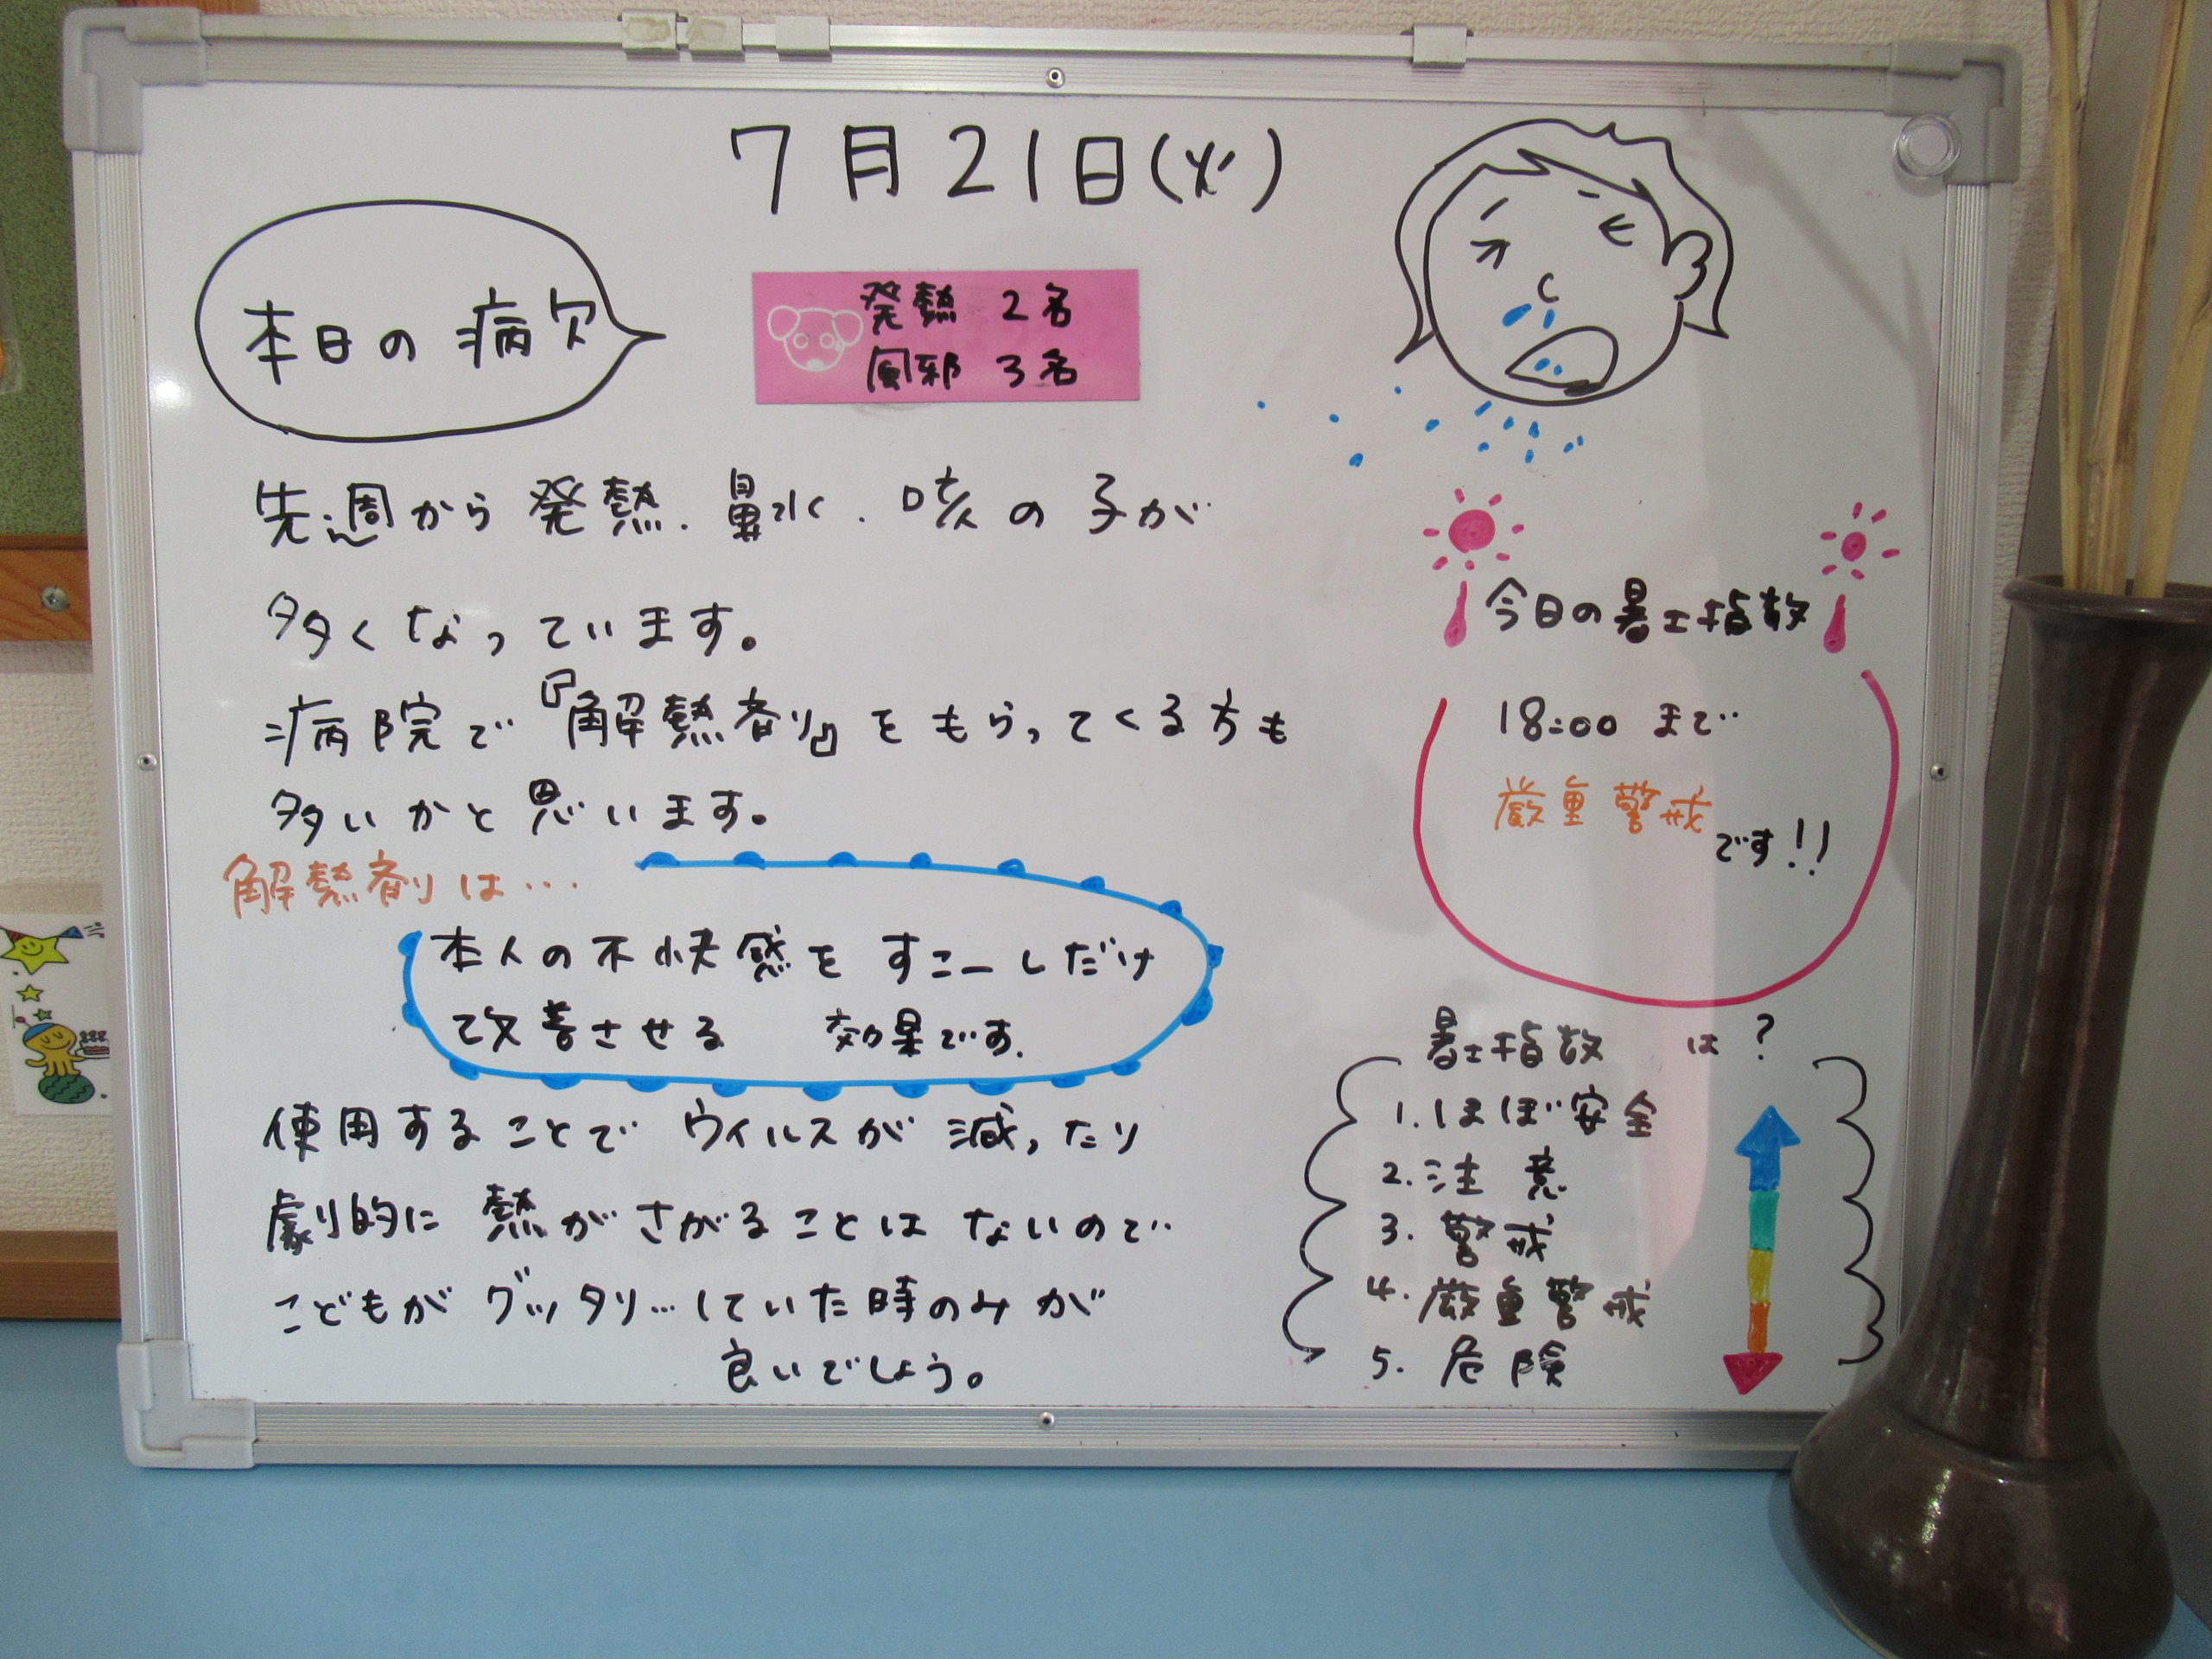 7月21日(火)
本日の病欠
発熱 2名
風邪 3名
先週から発熱.鼻水.咳の子が
多くなっています。
病院で『解熱剤』をもらってくる方も
多いかと思います。
解熱剤は…
本人の不快感をすこーしだけ
改善させる 効果です.
使用することでウイルスが減ったり
劇的に熱がさがることはないので
こどもがグッタリ…していた時のみが
良いでしょう。
今日の暑さ指数
18:00まで
厳重警戒です!!
暑さ指数は?
1.ほぼ安全
2.注意
3.警戒
4.厳重警戒
5.危険